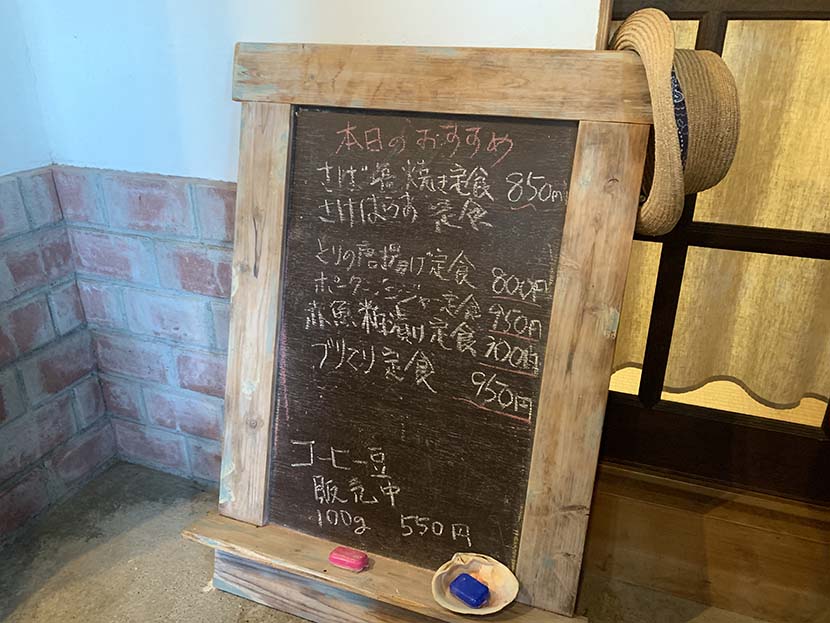 本日のおすすめ
さば塩焼き定食 850円
さけはらみ定食
とりの唐揚げ定食 800円
ポークジンジャー定食 950円
赤魚粕漬け定食 700円
ブリてり定食 950円
コーヒー豆
販売中
100g 550円